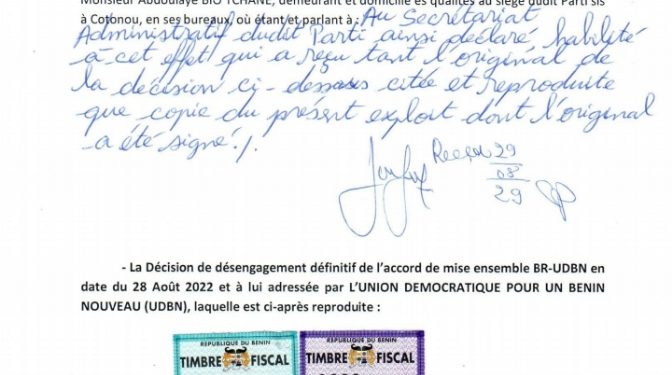 Monsieur Abdoulaye BIO TCHANE, demeurant et domicilié ès qualités au siège dudit Parti sis
à Cotonou, en ses bureaux, où étant et parlant à : Au Secrétariat
Administratif dudit Parti ainsi déclaré, habilité
à cet effet qui a reçu tant l'original de
la décision ci-dessus citée et reproduite
que copie du présent exploit dont l'original
a été signé./.
Reçu 29
08
29
- La Décision de désengagement définitif de l'accord de mise ensemble BR-UDBN en
date du 28 Août 2022 et à lui adressée par L'UNION DEMOCRATIQUE POUR UN BENIN
NOUVEAU (UDBN), laquelle est ci-après reproduite :
REPUBLIQUE DU BENIN
TIMBRE FISCAL
REPUBLIQUE DU BENIN
TIMBRE FISCAL